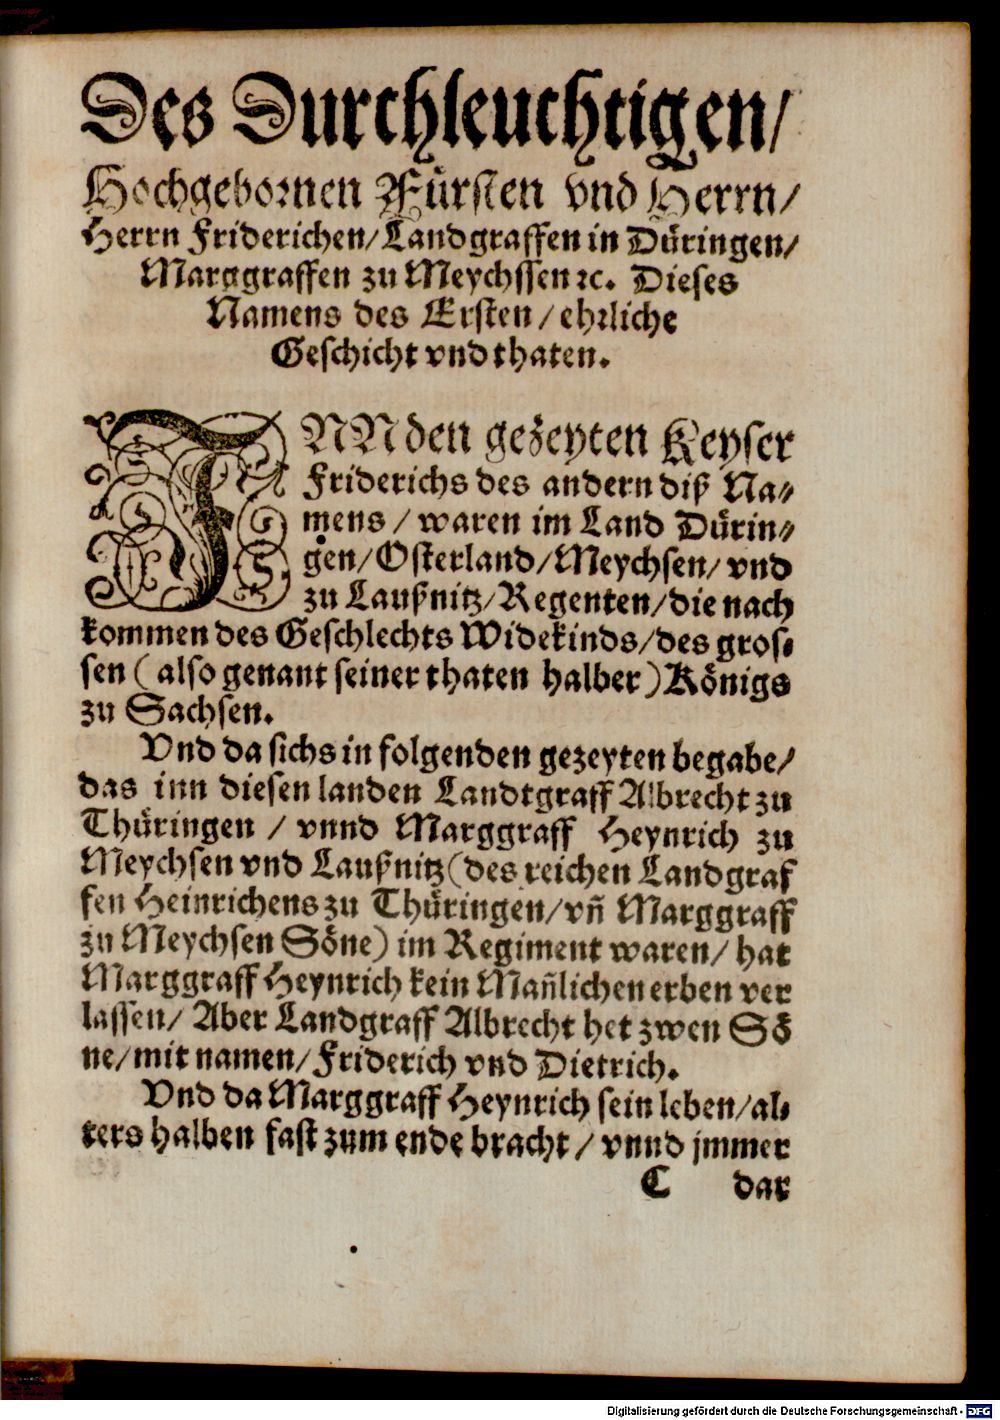 Des Durchleuchtigen/
Hochgebornen Fürsten vnd Herrn/
Herrn Friderichen/ Landgraffen in Düringen/
Marggraffen zu Meychssen ꝛc. Dieses
Namens des Ersten/ ehrliche
Geschicht vnd thaten.
INN den gezeyten Keyser
Friderichs des andern diß Na-
mens/ waren im Land Dürin-
gen/ Osterland/ Meychsen/ vnd
zu Laußnitz/ Regenten/ die nach
kommen des Geschlechts Widekinds/ des gros-
sen (also genant seiner thaten halber) Königs
zu Sachsen.
Vnd da sichs in folgenden gezeyten begabe/
das inn diesen landen Landtgraff Albrecht zu
Thüringen / vnnd Marggraff Heynrich zu
Meychsen vnd Laußnitz (des reichen Landgraf
fen Heinrichens zu Thüringen/ vñ Marggraff
zu Meychsen Söne) im Regiment waren/ hat
Marggraff Heynrich kein Mañlichen erben ver
lassen/ Aber Landgraff Albrecht het zwen Sö
ne/ mit namen/ Friderich vnd Dietrich.
Vnd da Marggraff Heynrich sein leben/ al-
ters halben fast zum ende bracht/ vnnd jmmer
C dar
Digitalisierung gefördert durch die Deutsche Forschungsgemeinschaft - DFG